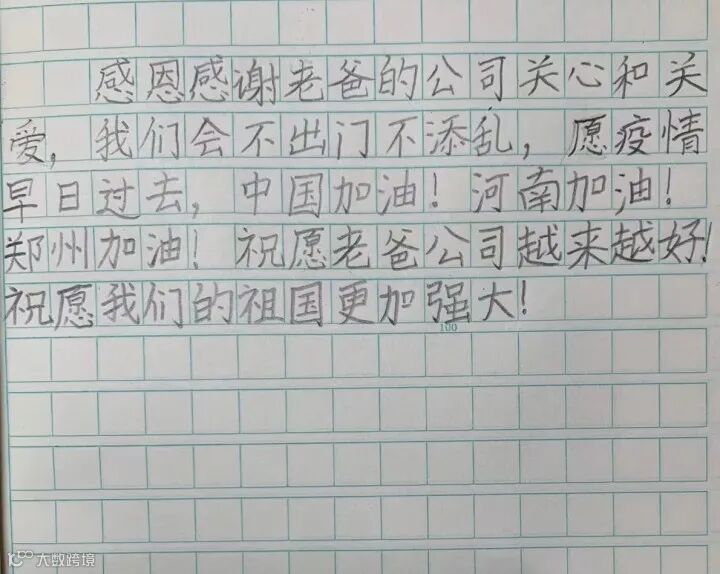 感恩感谢老爸的公司关心和关
爱，我们会不出门不添乱，愿疫情
早日过去，中国加油！河南加油！
郑州加油！祝愿老爸公司越来越好！
祝愿我们的祖国更加强大！
100
大数跨境